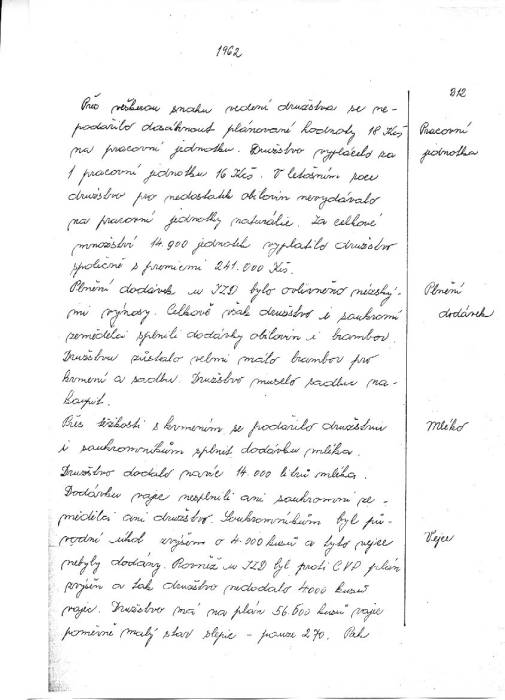 1962
312
Přes veškerou snahu vedení družstva se ne-
podařilo dosáhnout plánované hodnoty 18 Kčs
na pracovní jednotku. Družstvo vyplácelo za
1 pracovní jednotku 16 Kčs. V letošním roce
družstvo pro nedostatek obilovin nevydávalo
na pracovní jednotky naturálie. Za celkové
množství 14.900 jednotek vyplatilo družstvo
společně s premiemi 241.000 Kčs.
Pracovní
jednotka
Plnění dodávek u JZD bylo ovlivněno nízký-
mi výnosy. Celkově však družstvo i soukromí
zemědělci splnili dodávky obilovin i brambor.
Družstvu zůstalo velmi málo brambor pro
krmení a sadbu. Družstvo muselo sadbu na-
koupit.
Plnění
dodávek
Přes těžkosti s krmením se podařilo družstvu
i soukromníkům splnit dodávku mléka.
Družstvo dodalo navíc 14.000 litrů mléka.
Mléko
Dodávku vajec nesplnili ani soukromí ze-
mědělci ani družstvo. Soukromníkům byl pů-
vodní úkol zvýšen o 4.000 kusů a tyto vejce
nebyly dodány. Rovněž u JZD byl proti CVP plán
zvýšen a tak družstvo nedodalo 4000 kusů
vajec. Družstvo má na plán 56.600 kusů vajec
poměrně malý stav slepic – pouze 270. Pak
Vejce